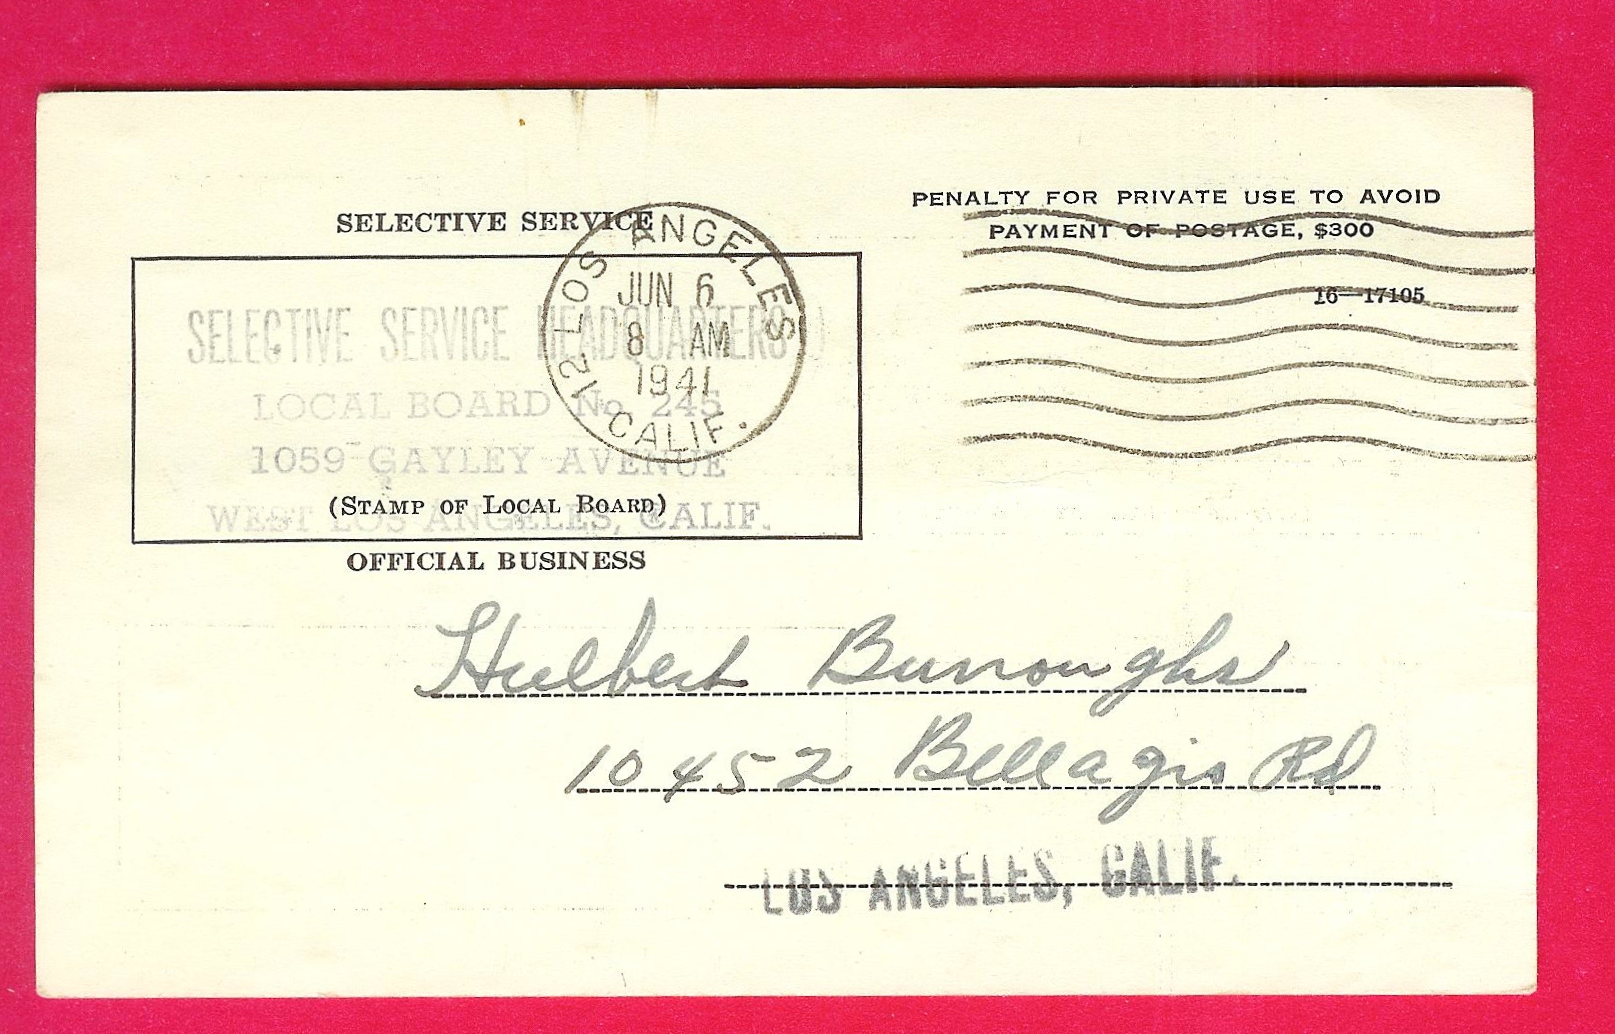 PENALTY FOR PRIVATE USE TO AVOID
PAYMENT OF POSTAGE, $300
16—17105
SELECTIVE SERVICE
LOS ANGELES 12 CALIF.
JUN 6
8 AM
1941
SELECTIVE SERVICE HEADQUARTERS
LOCAL BOARD No. 245
1059 GAYLEY AVENUE
(STAMP OF LOCAL BOARD)
WEST LOS ANGELES, CALIF.
OFFICIAL BUSINESS
Hulbert Burroughs
10452 Bellagio Rd
LOS ANGELES, CALIF.